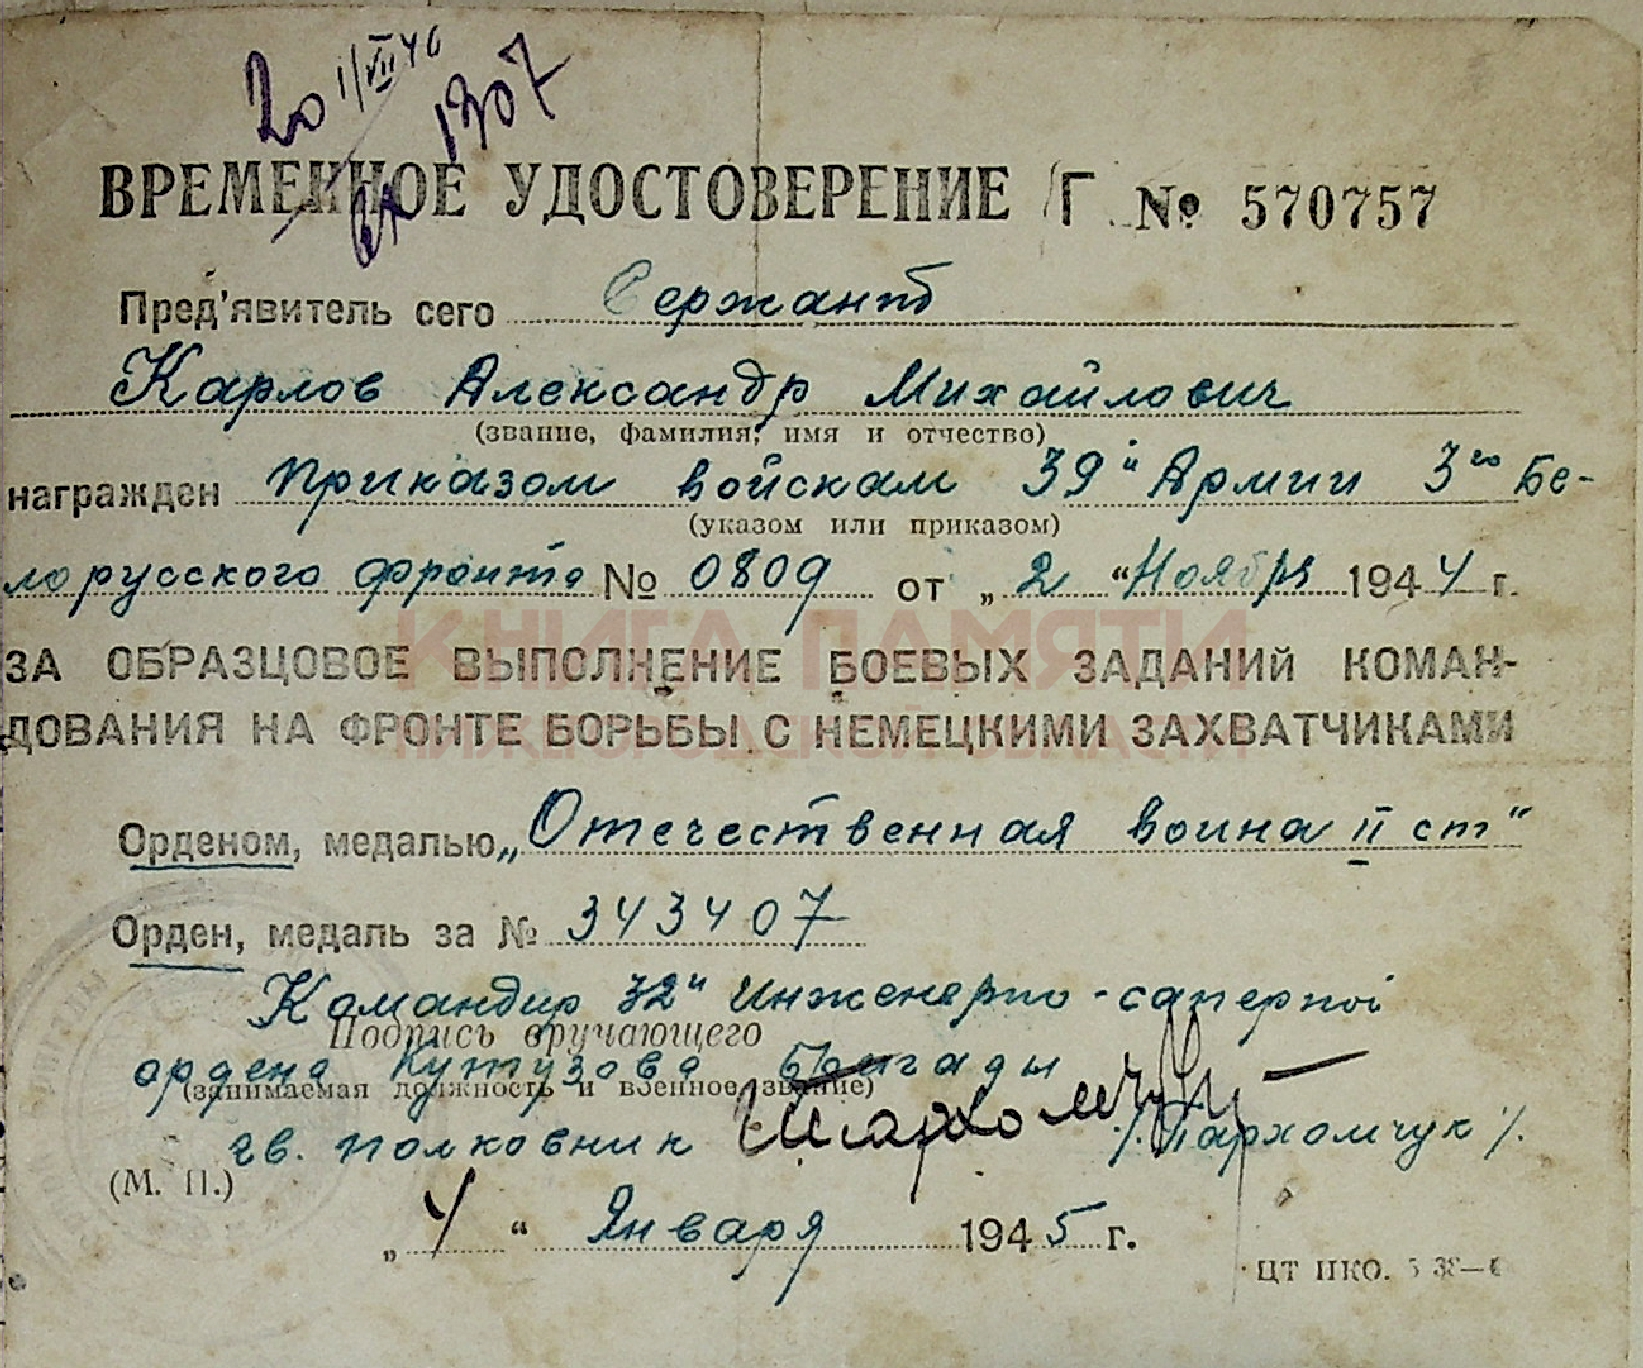 20 1/VII 46
1307
ВРЕМЕННОЕ УДОСТОВЕРЕНИЕ Г № 570757
Пред'явитель сего Сержант
Карлов Александр Михайлович
(звание, фамилия, имя и отчество)
награжден приказом войскам 39й Армии 3го Бе-
(указом или приказом)
лорусского фронта № 0809 от „2“ Ноября 1944 г.
КНИГА ПАМЯТИ
ЗА ОБРАЗЦОВОЕ ВЫПОЛНЕНИЕ БОЕВЫХ ЗАДАНИЙ КОМАН-
ДОВАНИЯ НА ФРОНТЕ БОРЬБЫ С НЕМЕЦКИМИ ЗАХВАТЧИКАМИ
НИЖЕГОРОДСКОЙ ОБЛАСТИ
Орденом, медалью „Отечественная война II ст“
Орден, медаль за № 343407
Командир 32й Инженерно-саперной
Подпись вручающего
ордена Кутузова Бригады
(занимаемая должность и военное звание)
гв. полковник /Пархомчук/.
(М. П.)
„4“ Января 1945 г.
ЦТ НКО.